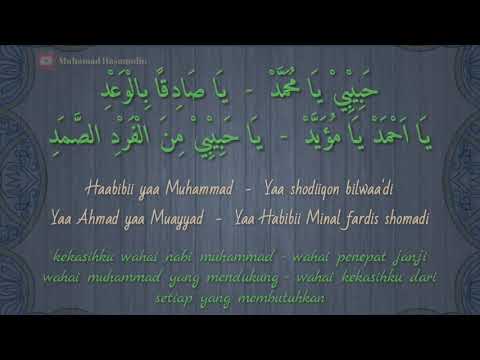 Muhamad Hasanudin
حَبِيْبِيْ يَا مُحَمَّدْ - يَا صَادِقًا بِالْوَعْدِ
يَا اَحْمَدْ يَا مُؤَيَّدْ - يَا حَبِيْبِيْ مِنَ الْفَرْدِ الصَّمَدِ
Haabibii yaa Muhammad - Yaa shodiiqon bilwaa'di
Yaa Ahmad yaa Muayyad - Yaa Habibii Minal fardis shomadi
kekasihku wahai nabi muhammad - wahai penepat janji
wahai muhammad yang mendukung - wahai kekasihku dari
setiap yang membutuhkan